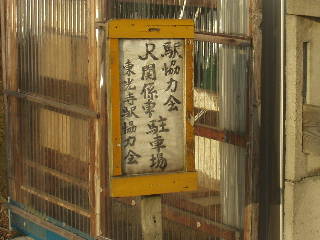 駅協力会
JR関係専駐車場
東光寺駅協力会